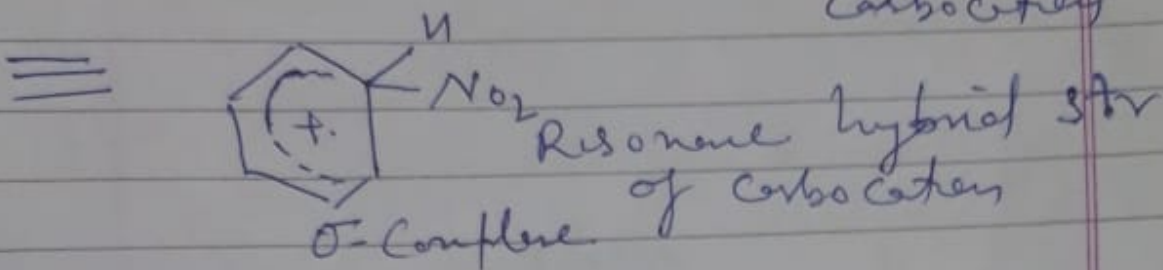 Carbocation
≡
H
NO2
+
Resonance hybrid str
of carbocation
σ-Complex